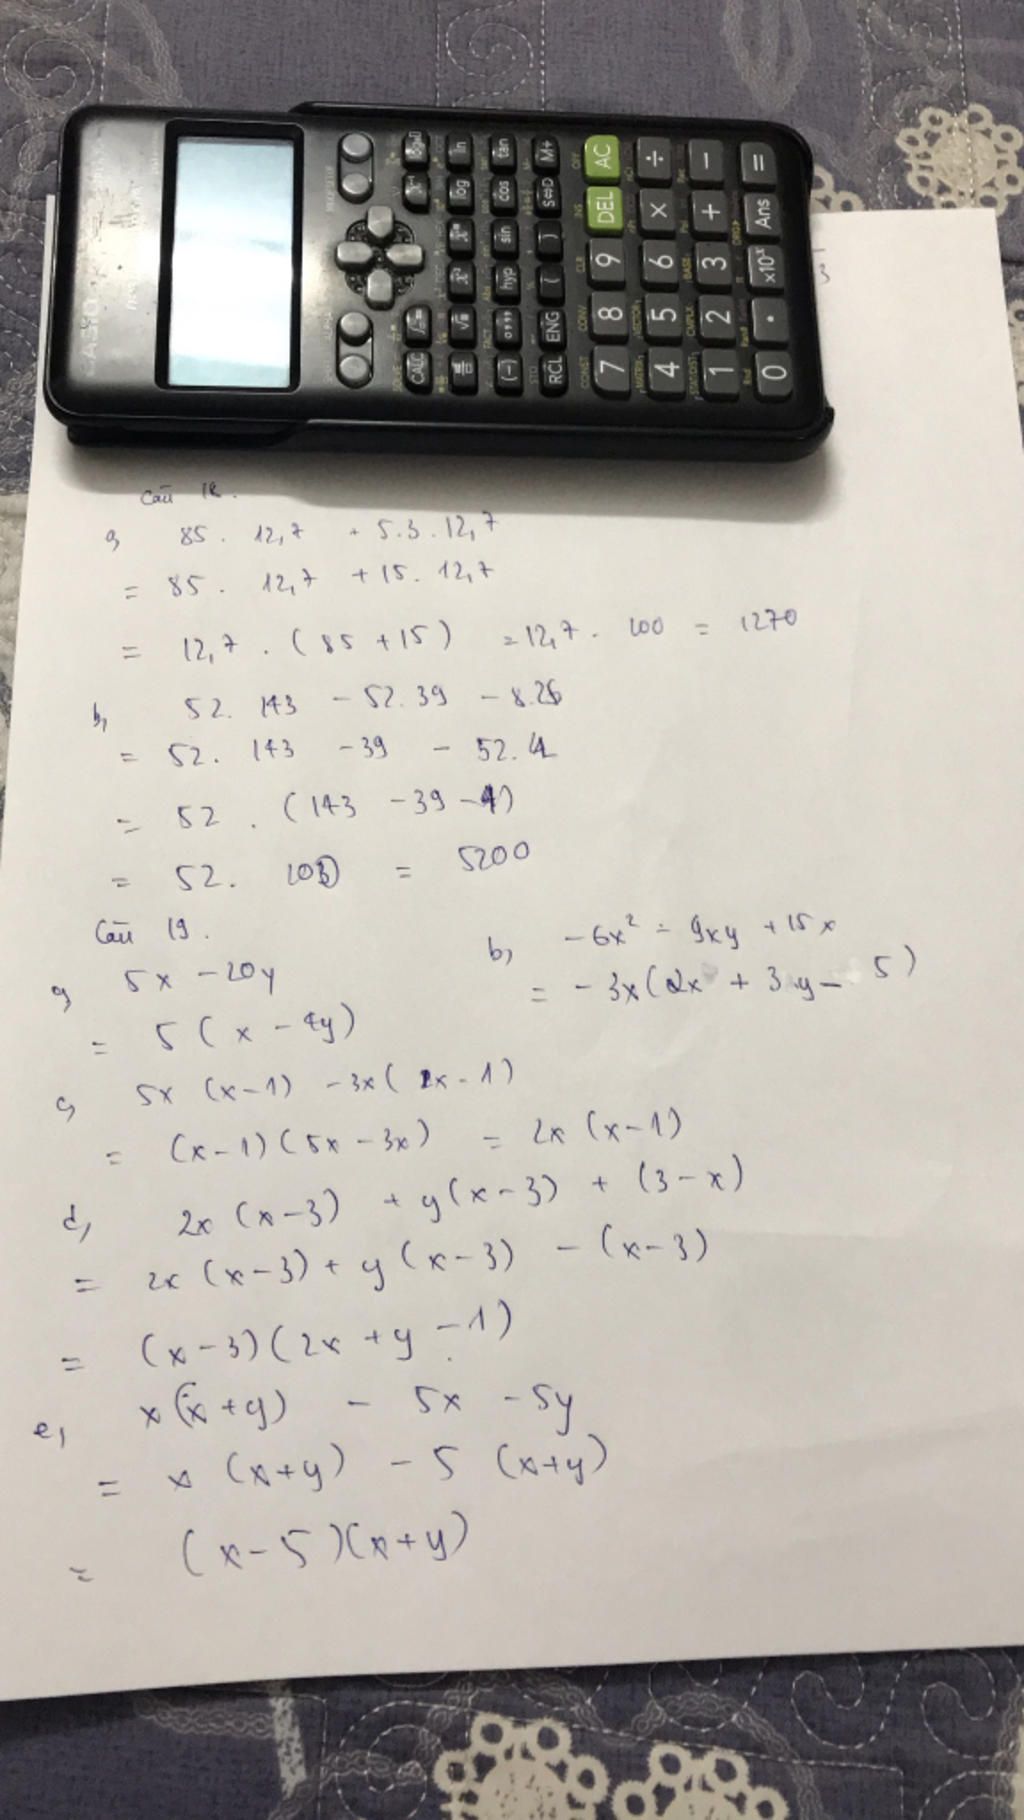 CASIO
ln
tan
M+
AC
÷
−
=
log
cos
S⇔D
DEL
×
+
Ans
sin
)
9
6
3
×10ˣ
x²
hyp
(
8
5
2
.
ENG
CALC
(−)
RCL
7
4
1
0
Câu 18.
a, 85. 12,7 + 5.3.12,7
= 85. 12,7 + 15. 12,7
= 12,7 . (85 + 15) = 12,7. 100 = 1270
b, 52. 143 - 52.39 - 8.26
= 52. 143 - 39 - 52.4
= 52 . (143 - 39 - 4)
= 52. 100 = 5200
Câu 19.
a, 5x - 20y
= 5 (x - 4y)
b, -6x² - 9xy + 15x
= -3x(2x + 3y - 5)
c, 5x (x-1) - 3x(x-1)
= (x-1)(5x-3x) = 2x (x-1)
d, 2x (x-3) + y(x-3) + (3-x)
= 2x (x-3) + y (x-3) - (x-3)
= (x-3)(2x + y - 1)
e, x(x+y) - 5x - 5y
= x (x+y) - 5 (x+y)
= (x-5)(x+y)